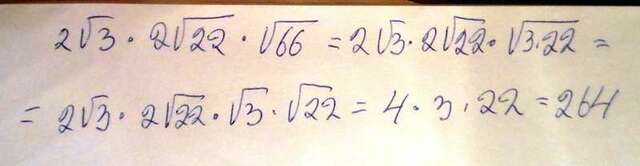 2√3 · 2√22 · √66 = 2√3 · 2√22 · √3·22 =
= 2√3 · 2√22 · √3 · √22 = 4 · 3 · 22 = 264